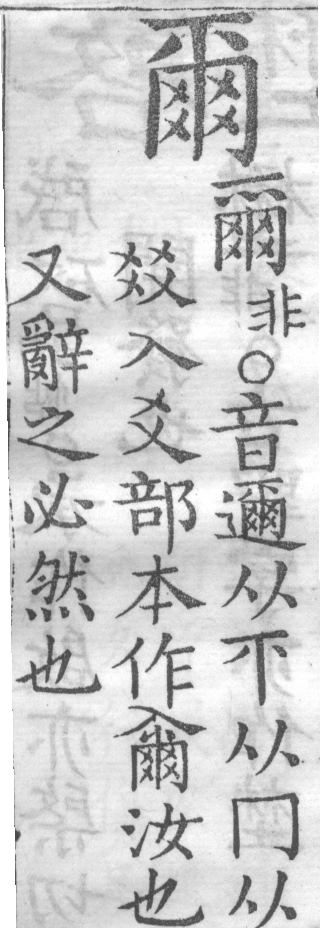 爾
爾非○音邇从不从冂从
㸚入爻部本作爾汝也
又辭之必然也